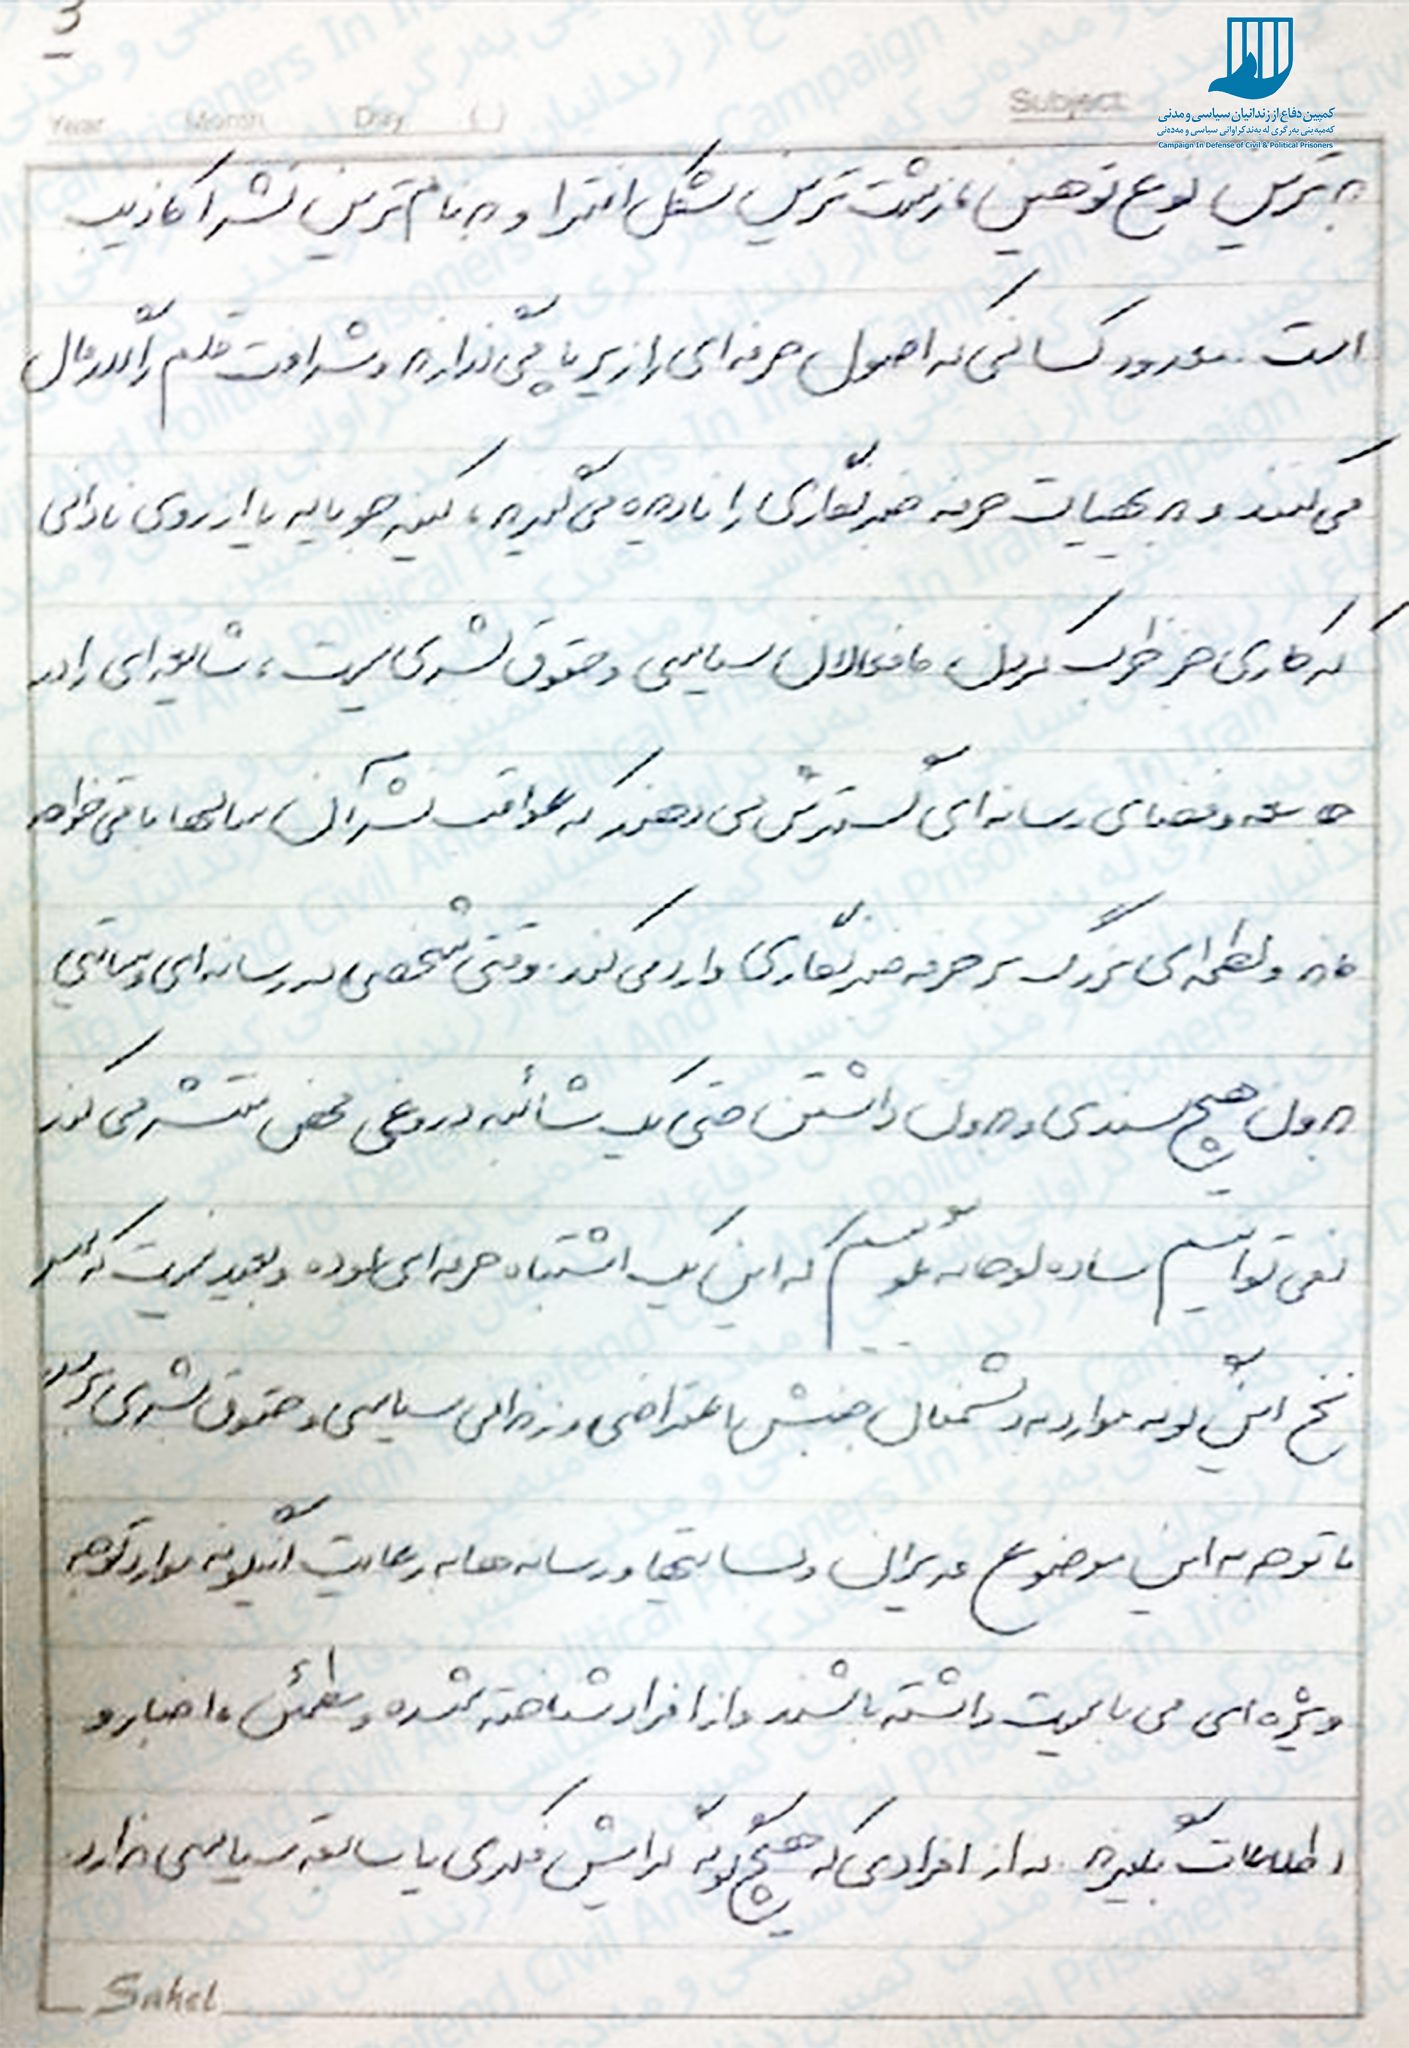 3
Year Month Day ( )
Subject:
کمپین دفاع از زندانیان سیاسی و مدنی
کەمپەینی بەرگری لە بەندکراوانی سیاسی و مەدەنی
Campaign In Defense of Civil & Political Prisoners
بدترین نوع توهین، زشت ترین شکل افترا و بدنام ترین نشر اکاذیب
است. معدود کسانی که اصول حرفه ای را زیر پا می گذارند و شرافت قلم را لگدمال
می کنند و بدیهیات حرفه خبرنگاری را نادیده می گیرند، کینه جویانه یا از روی نادانی
که کاری جز خراب کردن فعالان سیاسی و حقوق بشری نیست، شایعه ای را در
جامعه و فضای رسانه ای گسترش می دهند که عواقب نشر آن سالها باقی خواهد
ماند و لطمه ای بزرگ بر حرفه خبرنگاری وارد می کند. وقتی شخصی در رسانه ای و سایتی
بدون هیچ سندی و بدون داشتن حتی یک شائبه دروغی محض منتشر می کند
نمی توانیم ساده لوحانه بگوییم که این یک اشتباه حرفه ای بوده و بعید نیست که سر
نخ این گونه موارد به دشمنان جنبش اعتراضی و زندانی سیاسی و حقوق بشری برسد
با توجه به این موضوع مدیران وبسایتها و رسانه ها به رعایت اینگونه موارد توجه
ویژه ای می بایست داشته باشند و از افراد شناخته شده و مطمئن، اخبار و
اطلاعات بگیرند. نه از افرادی که هیچ گونه گرایش فکری یا سابقه سیاسی ندارد.
Sahel